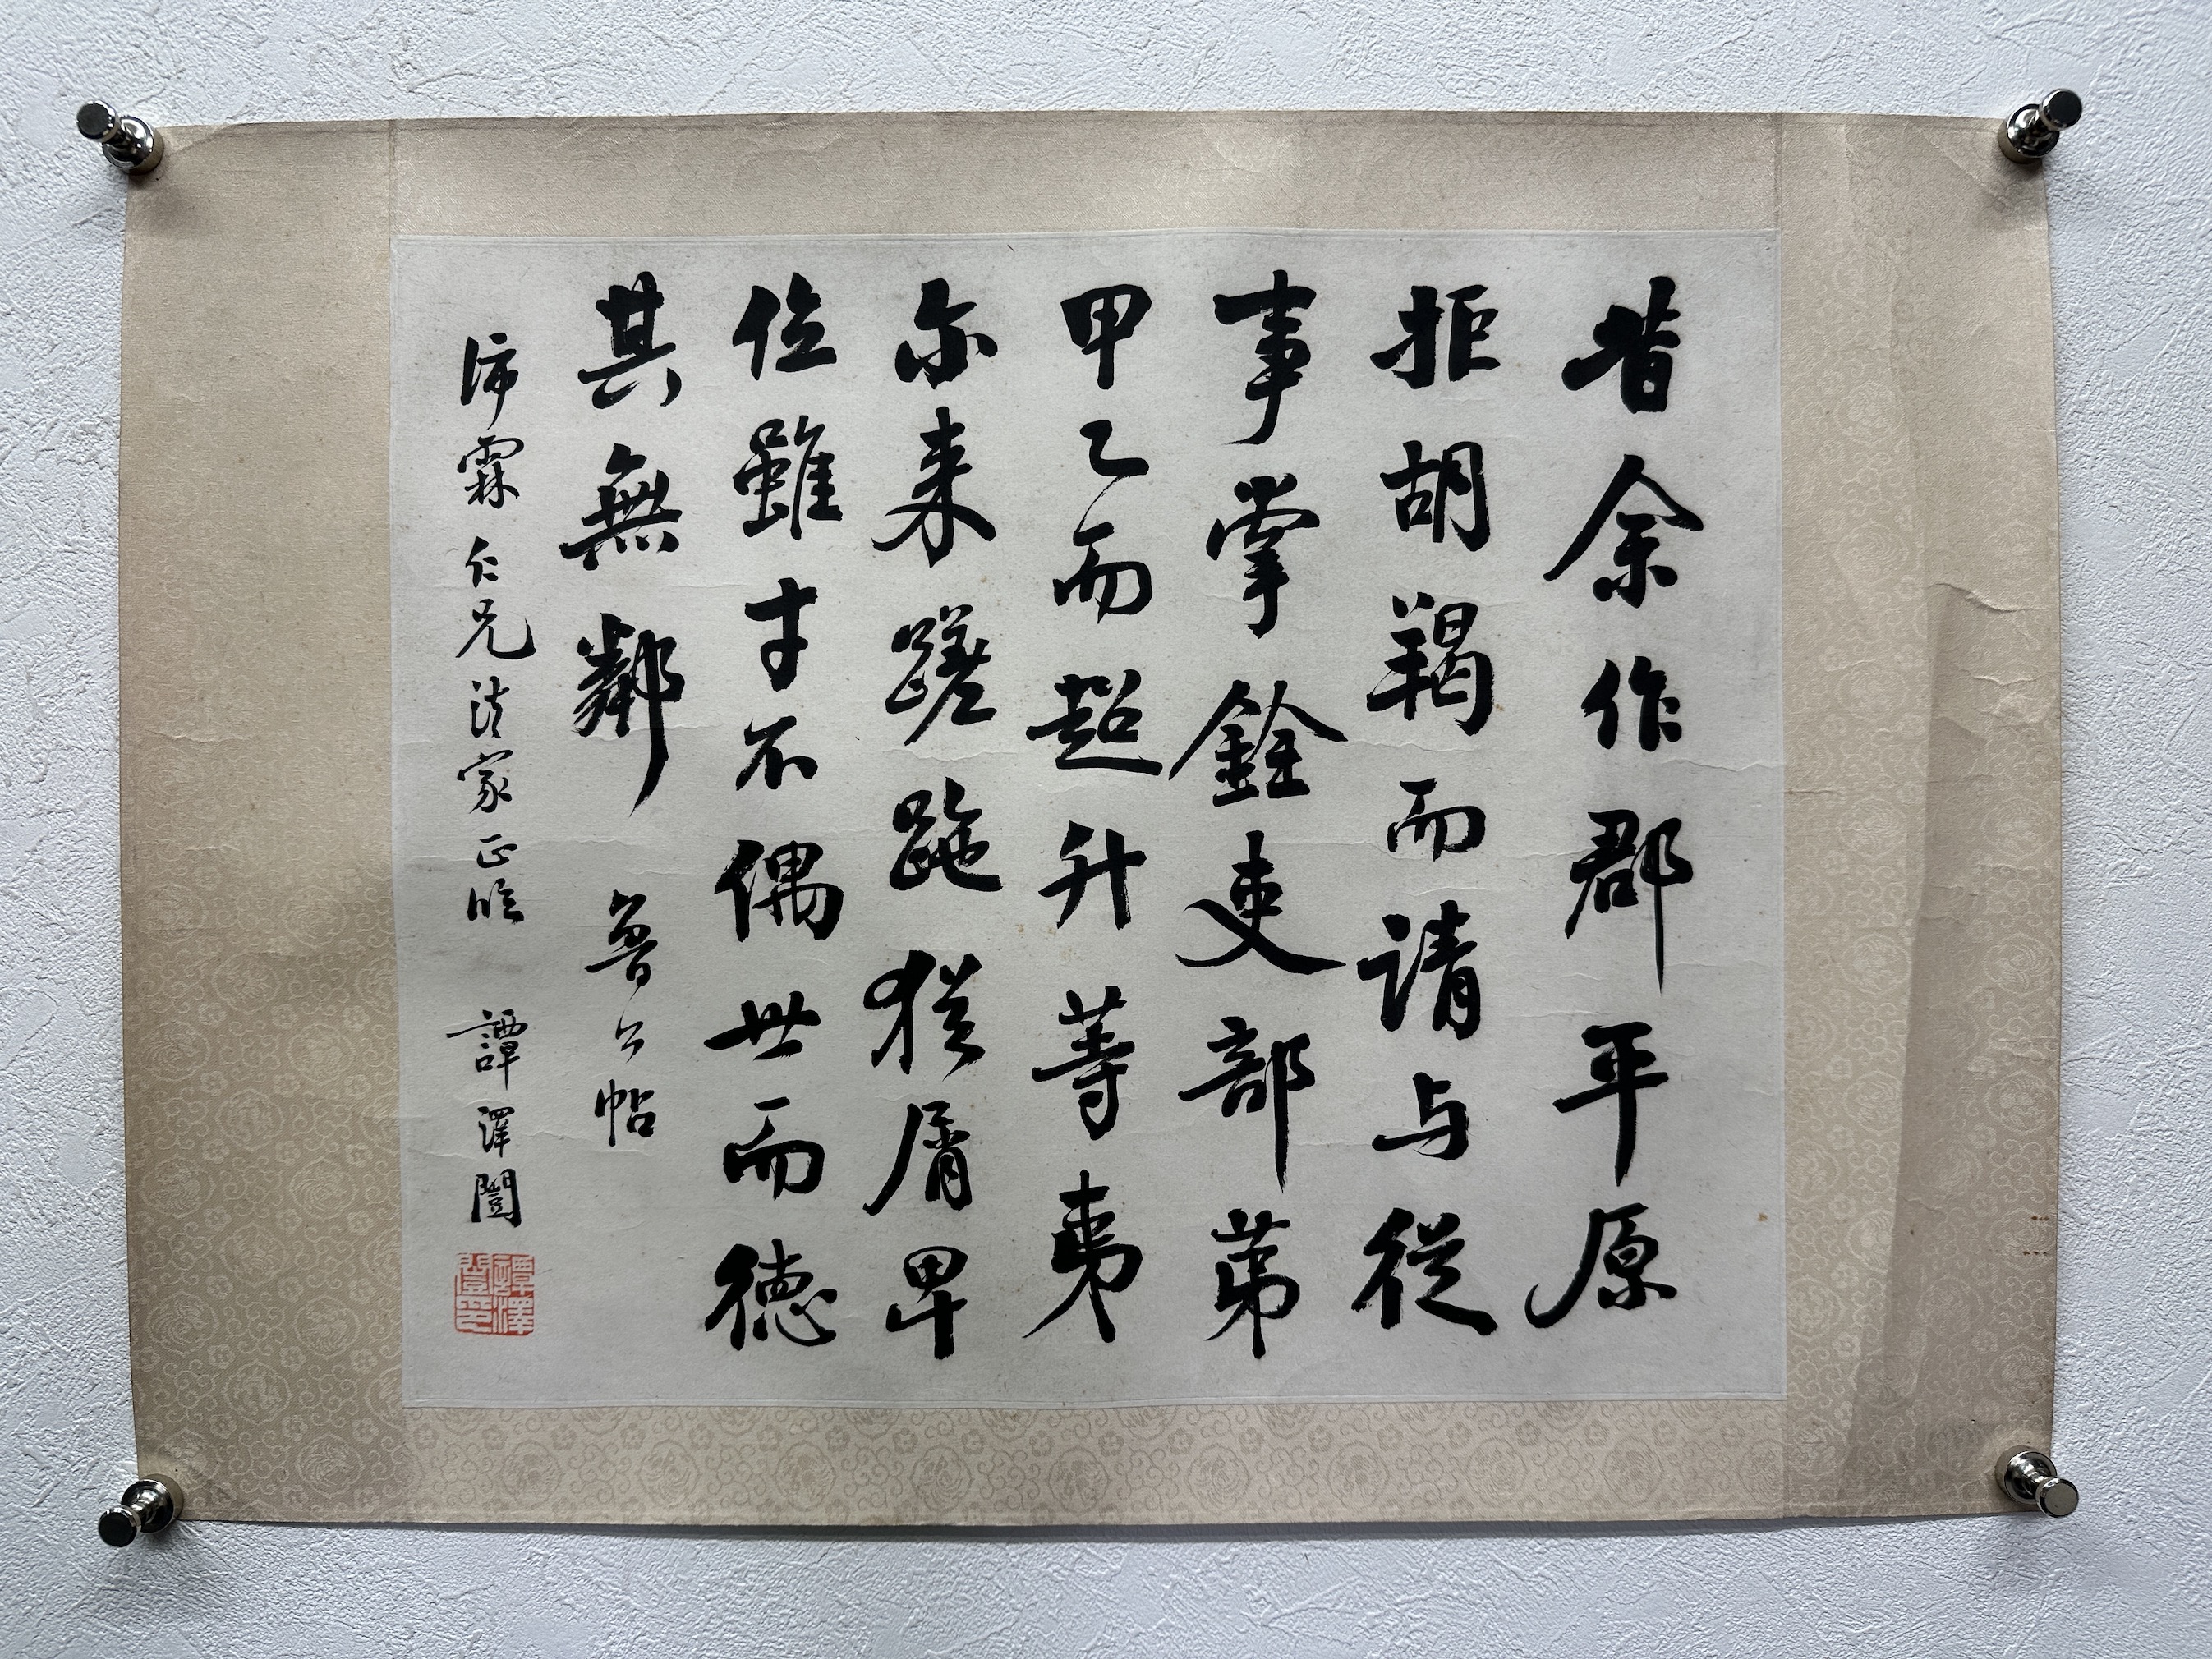 昔余作郡平原
拒胡羯而请与從
事掌銓吏部第
甲乙而超升等夷
尓来蹉跎猶屑卑
位雖才不偶世而德
其無鄰 魯公帖
霖仁兄法家正臨 譚澤闓
譚澤
闓印